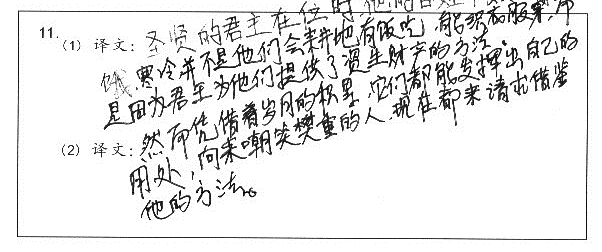 11. (1) 译文: 圣贤的君主在位时他的百姓
饿寒冷并不是他们会耕地有饭吃,能织衣服来,而
是因为君主为他们提供了资生财产的方法
(2) 译文: 然而凭借着岁月的积累,它们都能发挥出自己的
用处,向来嘲笑樊重的人,现在都来请求借鉴
他的方法。